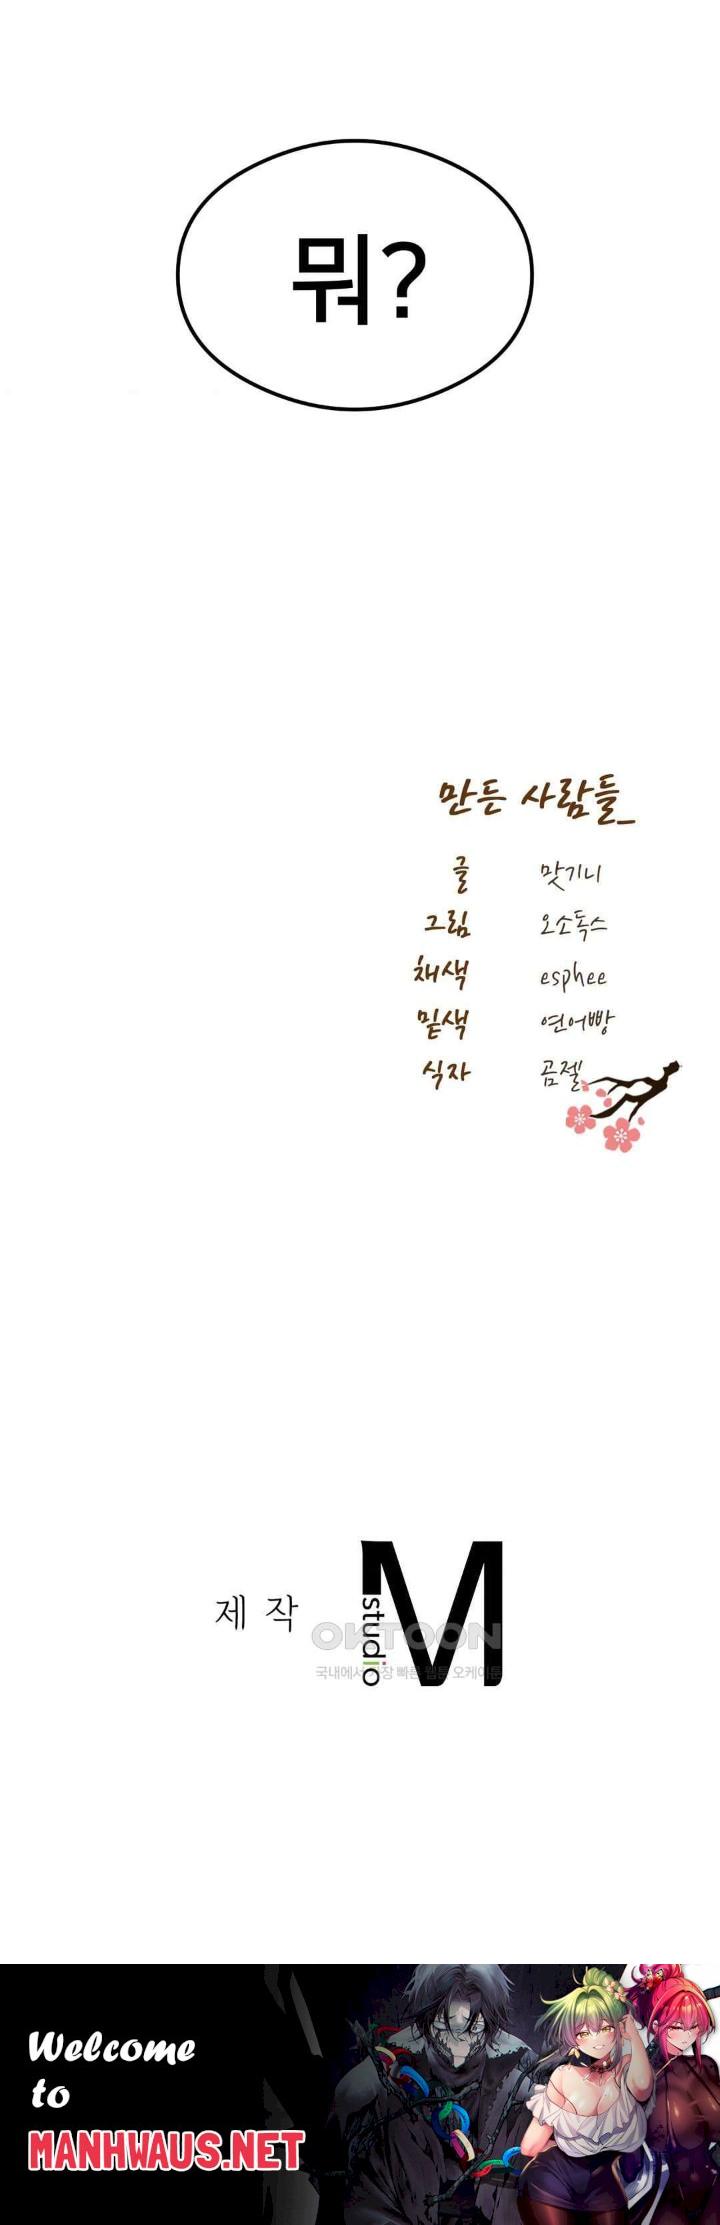 뭐?
만든 사람들_
글 맛기니
그림 오소독스
채색 esphee
밑색 연어빵
식자 곰젤
제작
studio M
OKTOON
국내에서 가장 빠른 웹툰 오케이툰
Welcome
to
MANHWAUS.NET